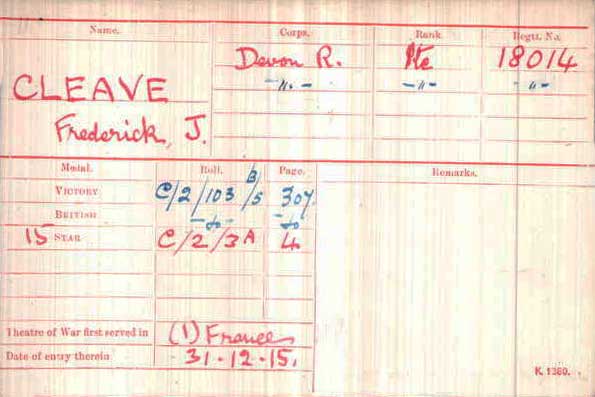 Name. Corps. Rank. Regtl. No.
Devon R. Pte 18014
CLEAVE -"- -"- -"-
Frederick, J.
Medal. Roll. Page. Remarks.
VICTORY C/2/103 B/5 307.
BRITISH -do- -do
15 STAR C/2/3A 4
Theatre of War first served in (1) France
Date of entry therein 31-12-15.
K 1380.